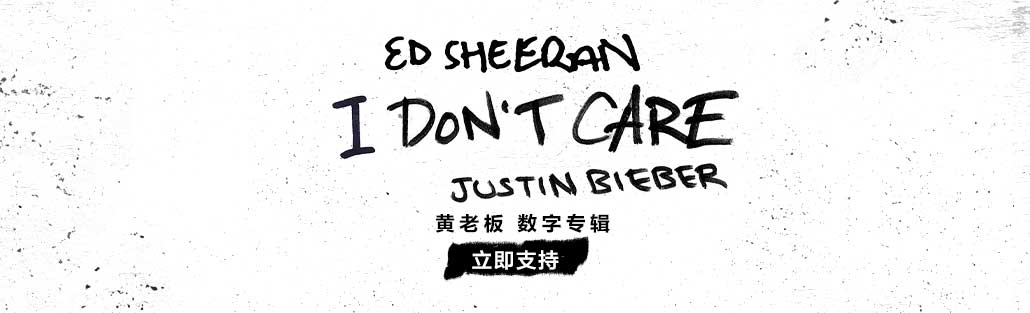 ED SHEERAN
I DON'T CARE
JUSTIN BIEBER
黄老板 数字专辑
立即支持